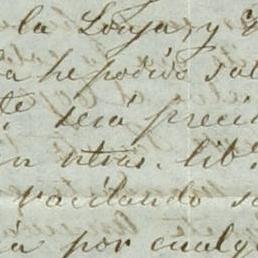 la Lonja, y
a he podido sal
te será preci
en ntrâs. lib.
vacilando s
ia por cualq